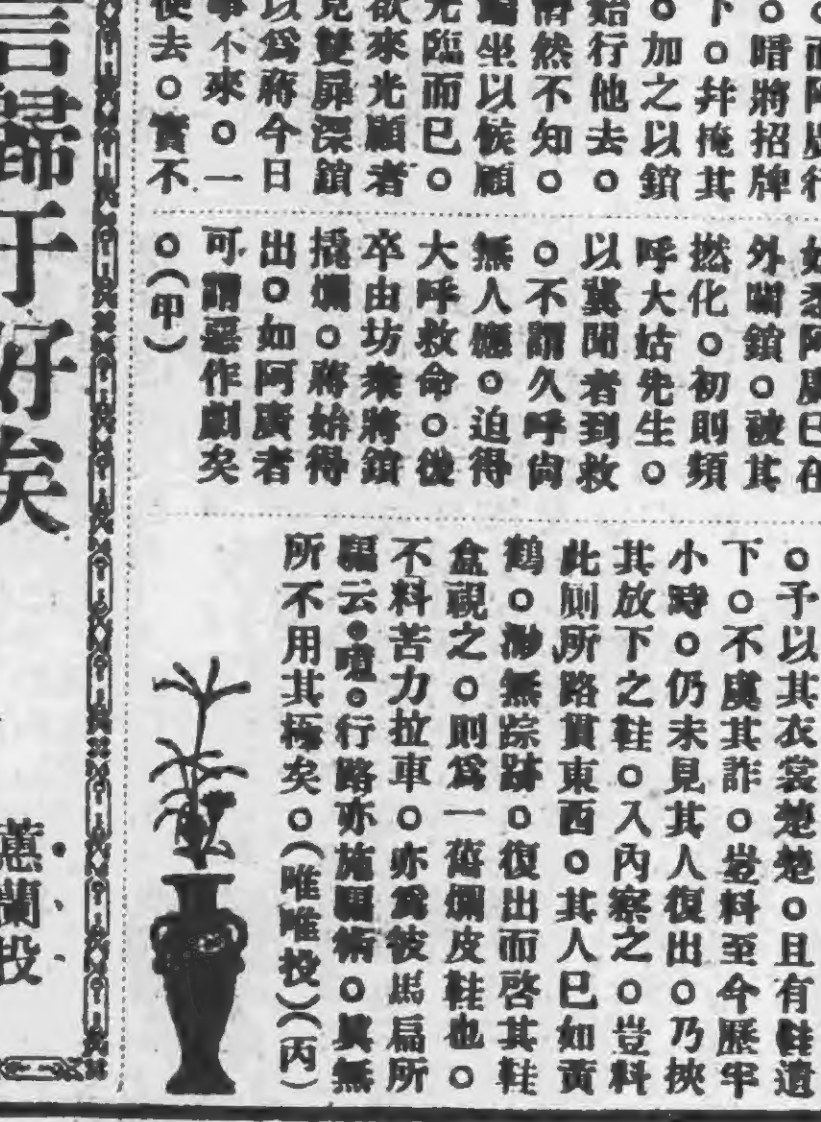 。暗將招牌
下。幷掩其
。加之以鎖
始行他去。
然不知。
端坐以候顧
光臨而已。
欲來光顧者
見雙扉深鎖
以爲蔣今日
事不來。一
便去。實不
始悉阿廣已在
外鎖。被其
撚化。初則頻
呼大姑先生。
以冀聞者到救
。不謂久呼尙
無人應。迫得
大呼救命。後
卒由坊衆將鎖
撬爛。蔣始得
出。如阿廣者
可謂惡作劇矣
。(甲)
。予以其衣裳楚楚。且有鞋遺
下。不虞其詐。豈料至今歷半
小時。仍未見其人復出。乃挾
其放下之鞋。入內察之。豈料
此厠所路貫東西。其人已如黃
鶴。渺無踪跡。復出而啓其鞋
盒視之。則爲一舊爛皮鞋也。
不料苦力拉車。亦爲彼馬扁所
騙云。噫。行路亦施騙術。眞無
所不用其極矣。(唯唯投)(丙)
言歸于好矣
蕙蘭投